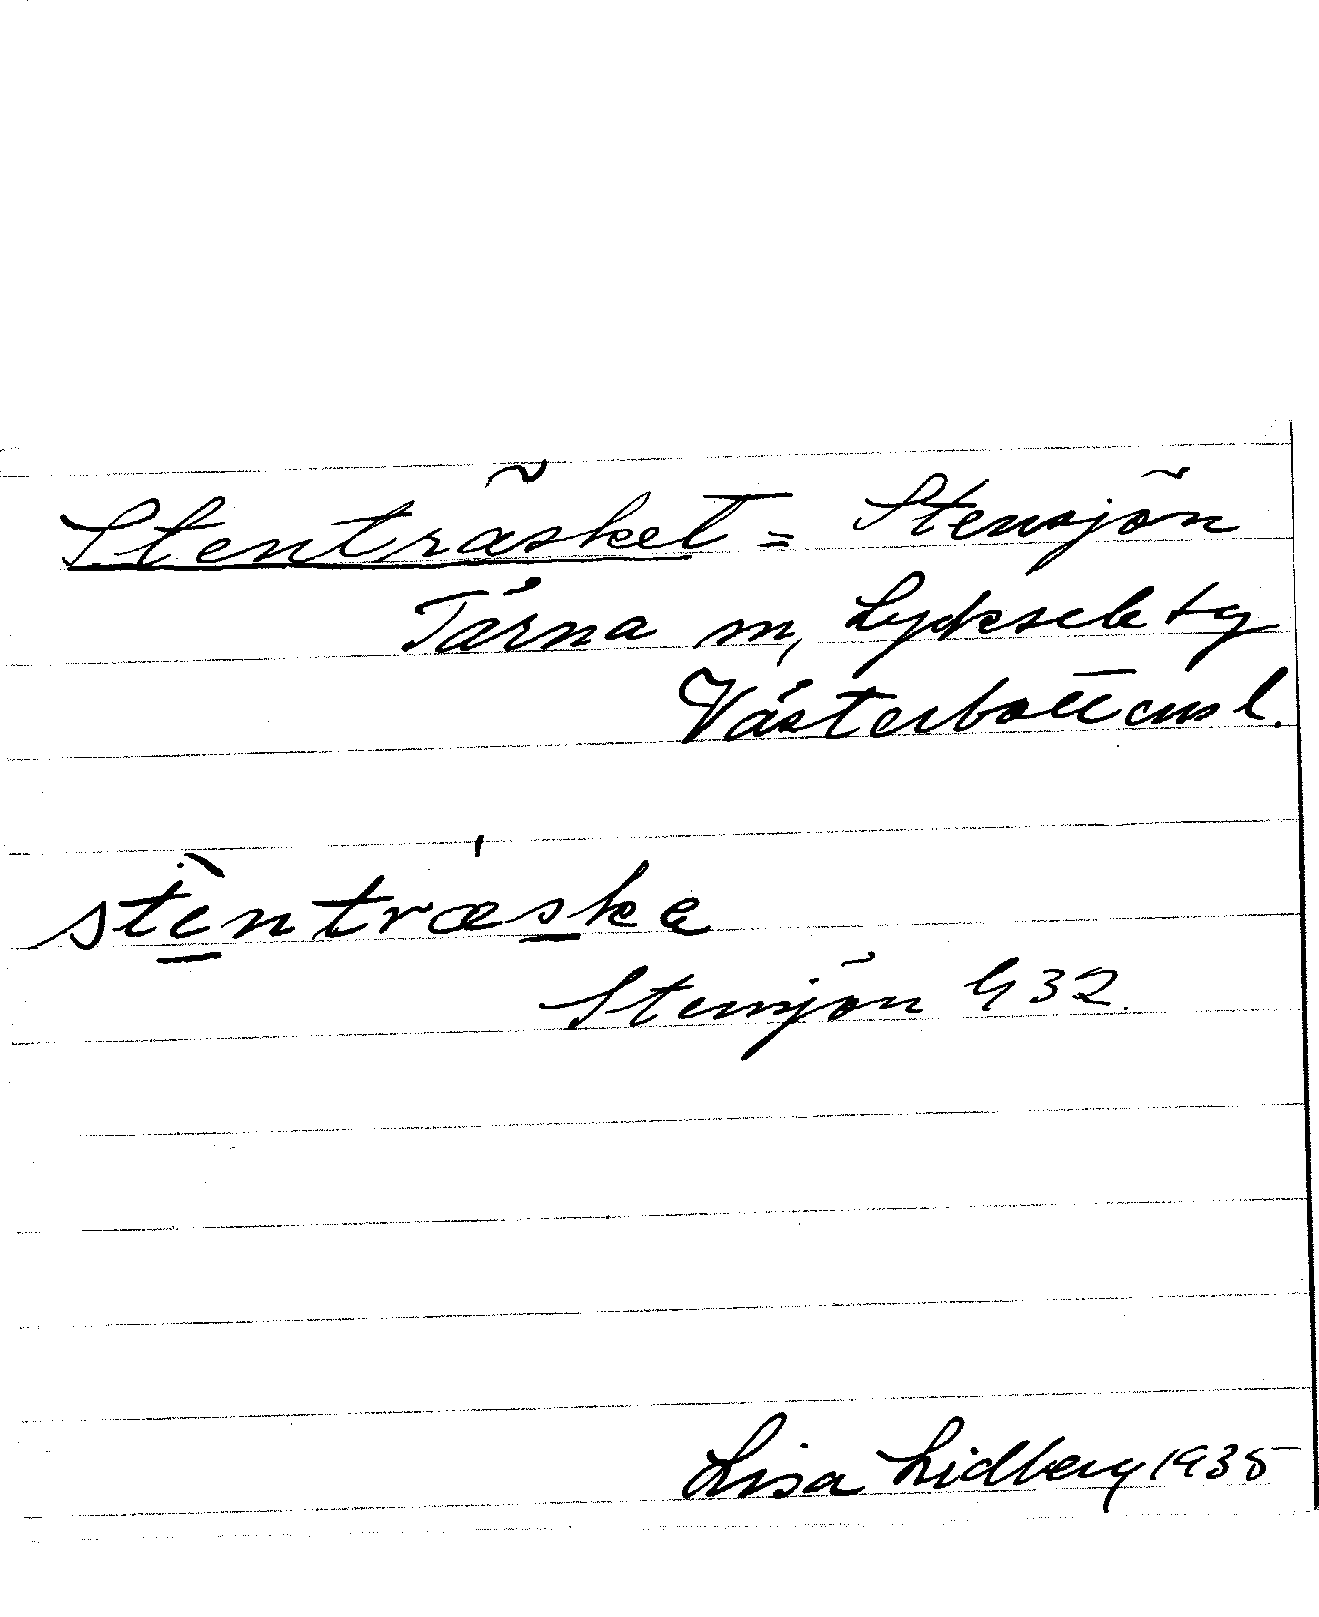 Stenträsket = Stensjön
Tärna sn, Lycksele tg
Västerbottens l.
stèntræskɐ
Stensjön G 32.
Lisa Lidberg 1935